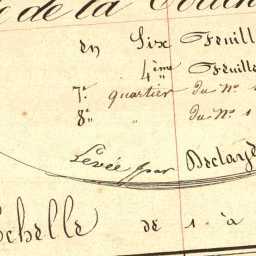 de la
en Six Feuill
4ème Feuille
7e quartier du No 1
8e " du No 1
Levée par Declay
Echelle de 1. à